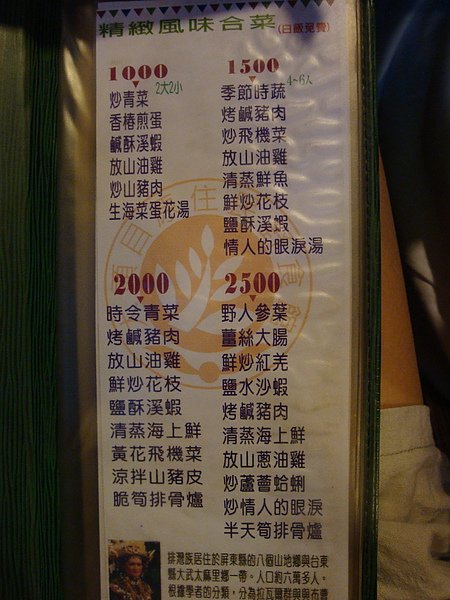 精緻風味合菜(白飯免費)
1000
2大2小
炒青菜
香椿煎蛋
鹹酥溪蝦
放山油雞
炒山豬肉
生海菜蛋花湯
1500
4~6人
季節時蔬
烤鹹豬肉
炒飛機菜
放山油雞
清蒸鮮魚
鮮炒花枝
鹽酥溪蝦
情人的眼淚湯
2000
時令青菜
烤鹹豬肉
放山油雞
鮮炒花枝
鹽酥溪蝦
清蒸海上鮮
黃花飛機菜
涼拌山豬皮
脆筍排骨爐
2500
野人參葉
薑絲大腸
鮮炒紅羌
鹽水沙蝦
烤鹹豬肉
清蒸海上鮮
放山蔥油雞
炒蘆薈蛤蜊
炒情人的眼淚
半天筍排骨爐
排灣族居住於屏東縣的八個山地鄉與台東
縣大武太麻里鄉一帶。人口約六萬多人。
根據學者的分類，分為拉瓦爾群與與布曹